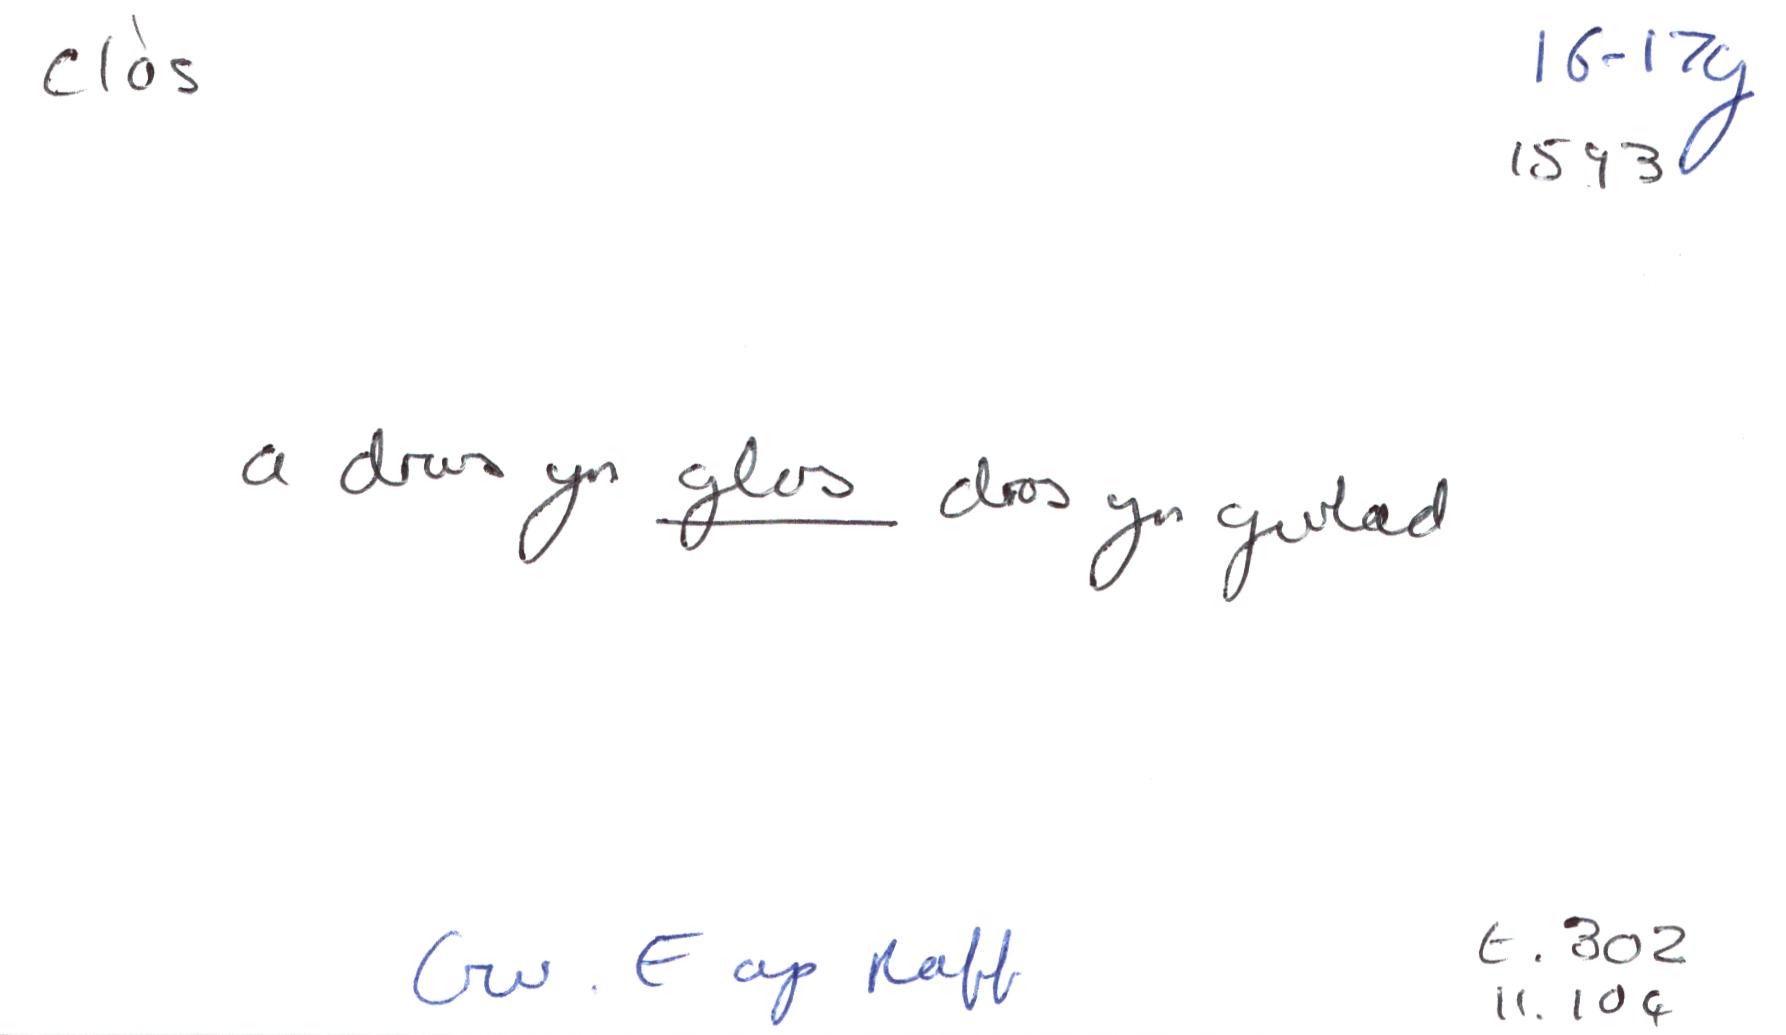 clòs
16-17g
1593
a drws yn glos dros yn gwlad
Gw. E ap Raff
t. 302
ll. 104